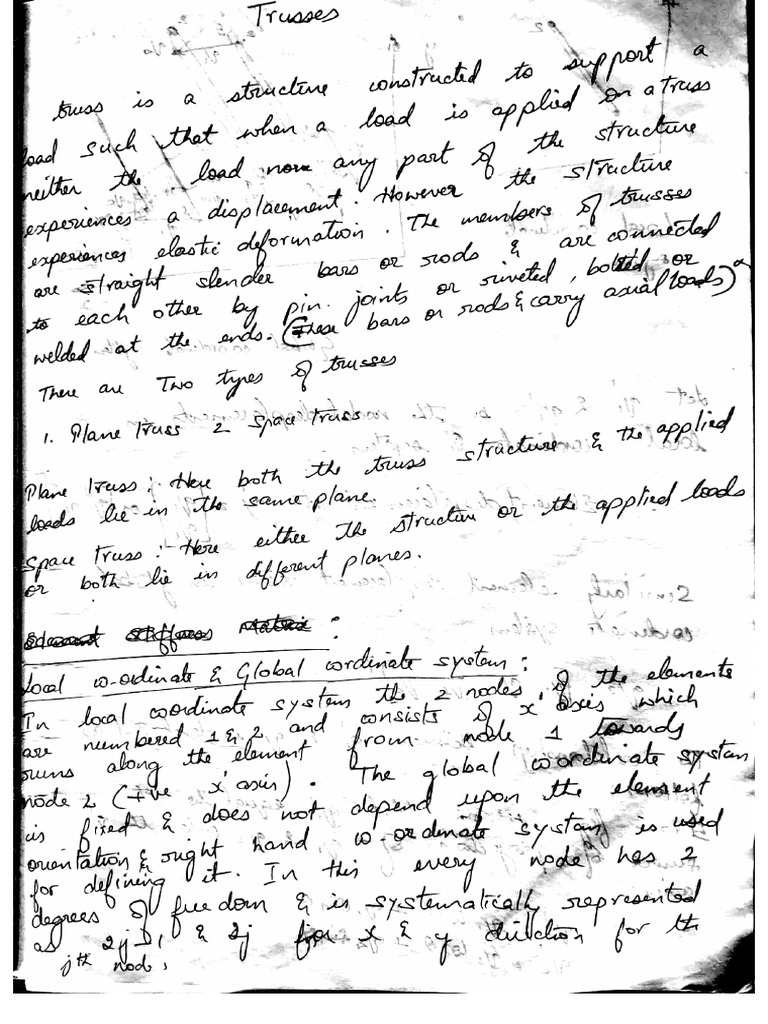 Trusses
truss is a structure constructed to support a
load such that when a load is applied on a truss
neither the load nor any part of the structure
experiences a displacement. However the structure
experiences elastic deformation. The members of trusses
are straight slender bars or rods & are connected
to each other by pin joints or riveted, bolted or
welded at the ends. (These bars or rods & carry axial loads)
There are Two types of trusses
1. Plane truss 2 Space truss
Plane truss: Here both the truss structure & the applied
loads lie in the same plane.
Space truss:- Here either the structure or the applied loads
or both lie in different planes.
Element Stiffness Matrix :
Local co-ordinate & Global cordinate system :
In local coordinate system the 2 nodes of the elements
are numbered 1 & 2 and consists of x' axis which
runs along the element from node 1 towards
node 2 (+ve x' axis). The global coordinate system
is fixed & does not depend upon the element
orientation & right hand co-ordinate system is used
for defining it. In this every node has 2
degrees of freedom & is systematically represented
as 2j-1 & 2j for x & y direction for the
jth node,